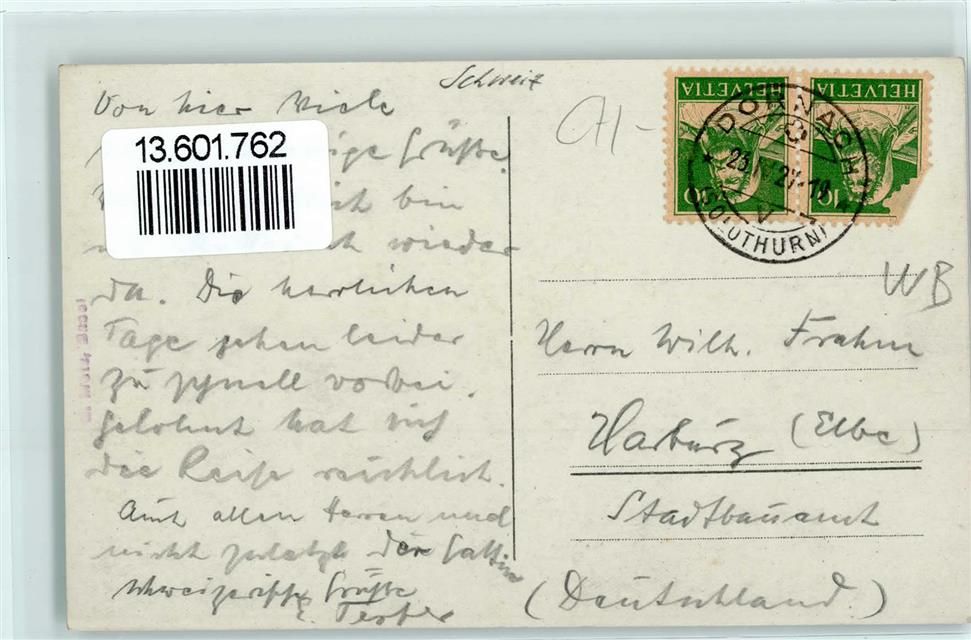 Schweiz
Von hier viele
13.601.762
ige Grüße.
ich bin
wieder
da. Die herrlichen
Tage gehen leider
zu schnell vorbei.
Gelohnt hat sich
die Reise reichlich.
Auch allen Herren und
nicht zuletzt der Gattin
schweizerische Grüße
HELVETIA
HELVETIA
10
10
DORNACH
(SOLOTHURN)
CH-
WB
Herrn Wilh. Frahm
Harburg (Elbe)
Stadtbauamt
(Deutschland.)